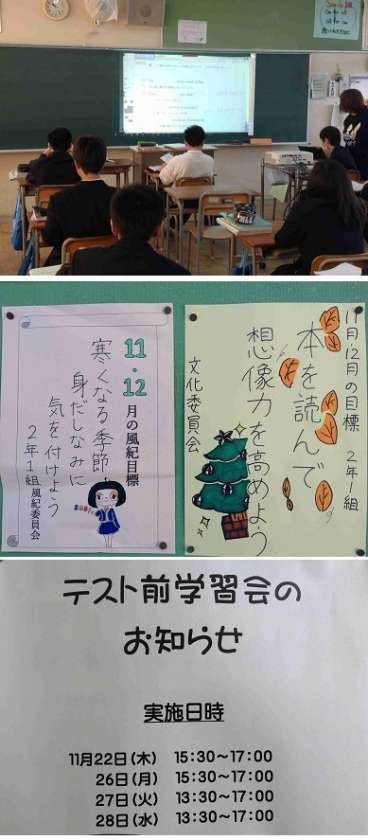 11・12月の風紀目標
寒くなる季節
身だしなみに
気を付けよう
2年1組風紀委員会
11月・12月の目標 2年1組
本を読んで
想像力を高めよう
文化委員会
テスト前学習会の
お知らせ
実施日時
11月22日(木) 15:30~17:00
26日(月) 15:30~17:00
27日(火) 13:30~17:00
28日(水) 13:30~17:00